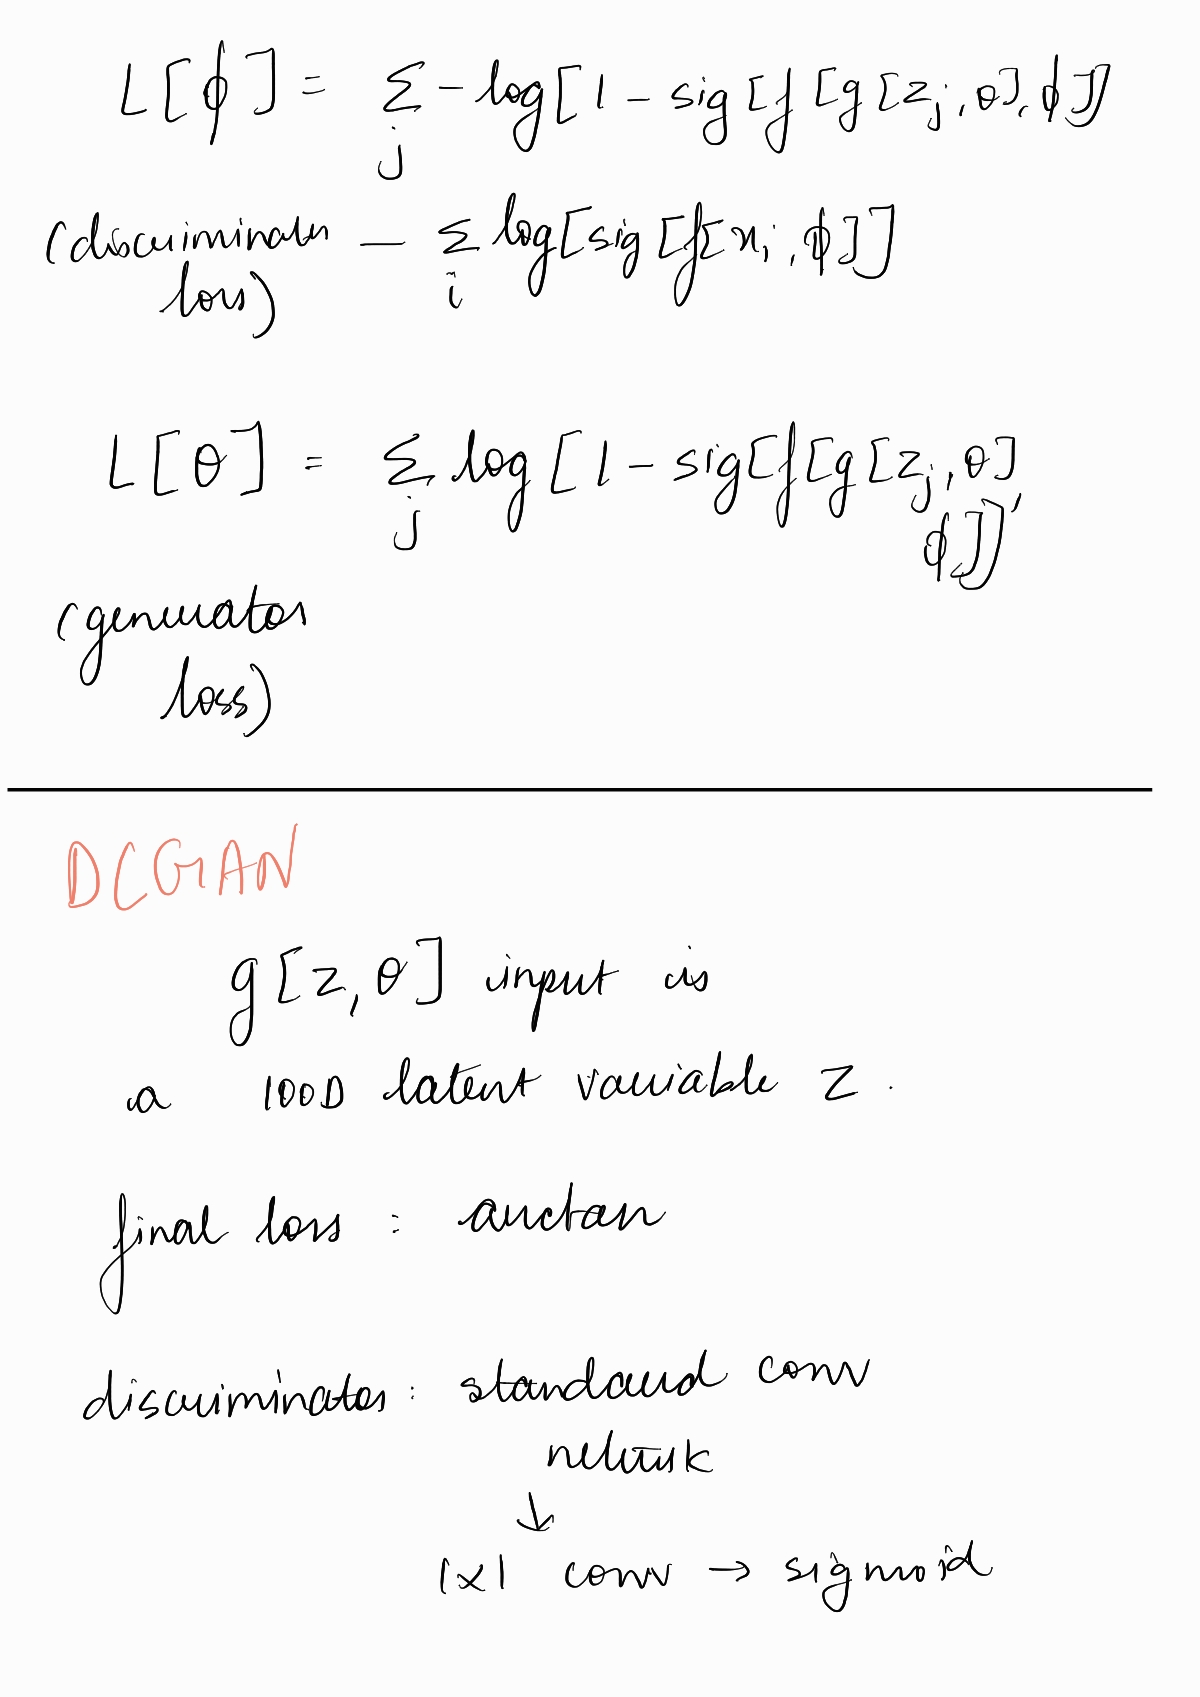 L[ϕ] = Σ_j - log[1 - sig[f[g[z_j, θ], ϕ]]
(discriminator — Σ_i log[sig[f[x_i, ϕ]]]
loss)
L[θ] = Σ_j log[1 - sig[f[g[z_j, θ],
ϕ]]
(generator
loss)
DCGAN
g[z, θ] input is
a 100D latent variable z.
final loss : arctan
discriminator : standard conv
network
↓
1x1 conv → sigmoid